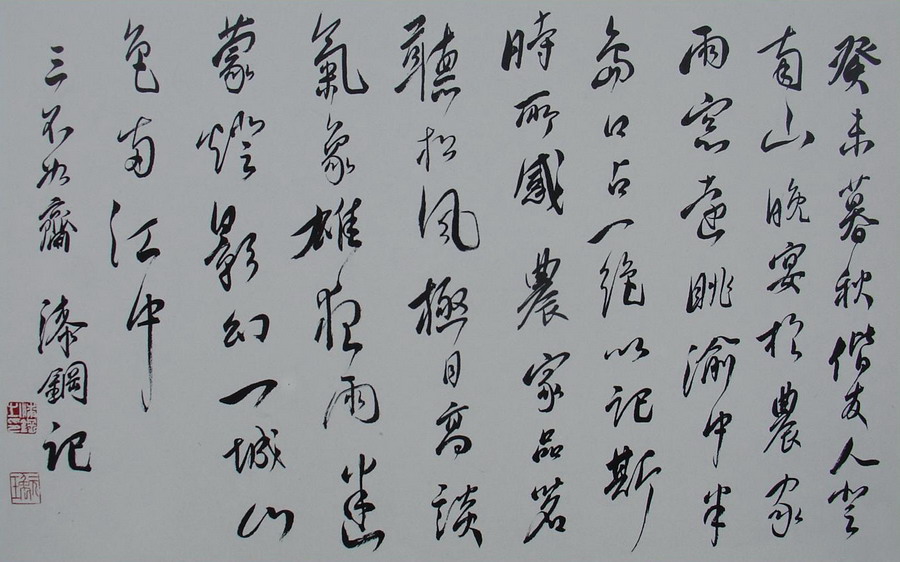 癸未暮秋偕友人登
南山晚宴於農家
雨窓遠眺渝中半
島口占一絕以記斯
時所感 農家品茗
聽松風極目高談
氣象雄夜雨迷
蒙燈影幻一城山
色兩江中
三不如齋 漆鋼記